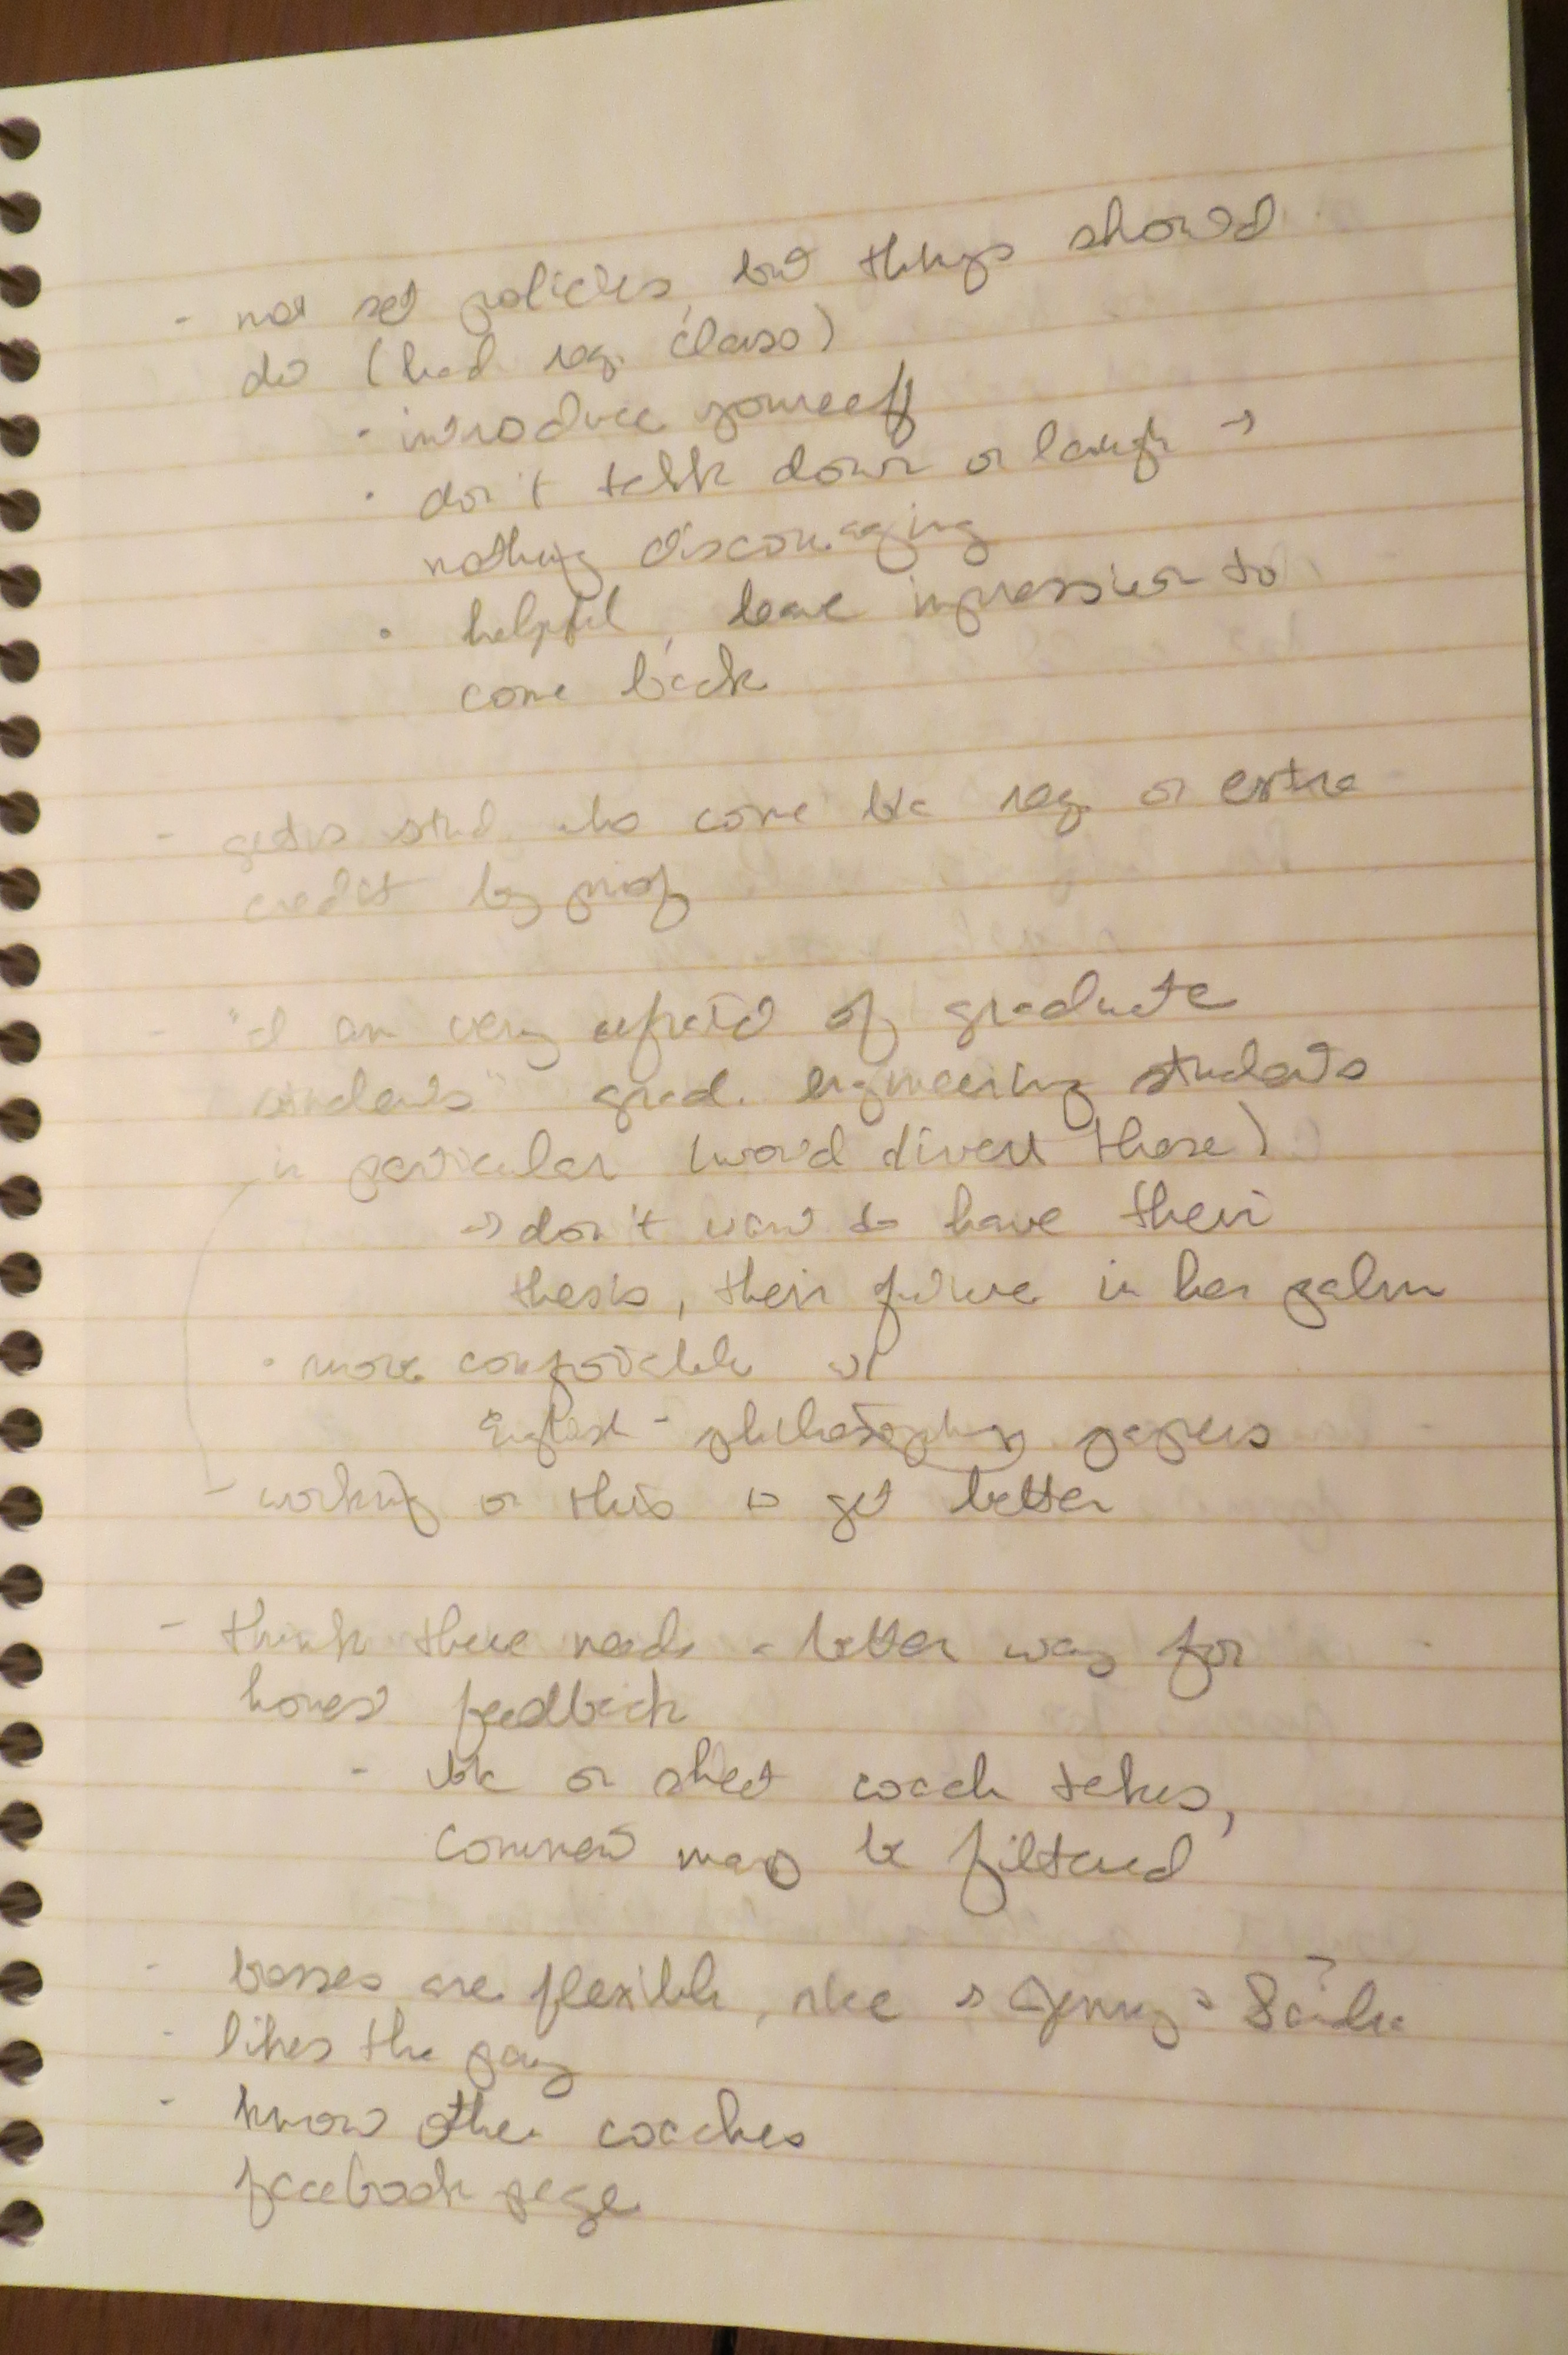 - not set policies, but things should
do (had req. class)
· introduce yourself
· don't talk down or laugh →
nothing discouraging
· helpful, leave impression to
come back
- gets stud. who come b/c req. or extra
credit by prof
- "I am very afraid of graduate
students" grad. engineering students
in particular (would divert those)
→ don't want to have their
thesis, their future in her palm
· more comfortable w/
English - philosophy papers
- working on this to get better
- think there needs a better way for
honest feedback
- b/c on sheet coach takes,
comment may be filtered
- bosses are flexible, nice → Jenny
- likes the pay
- know other coaches
facebook page